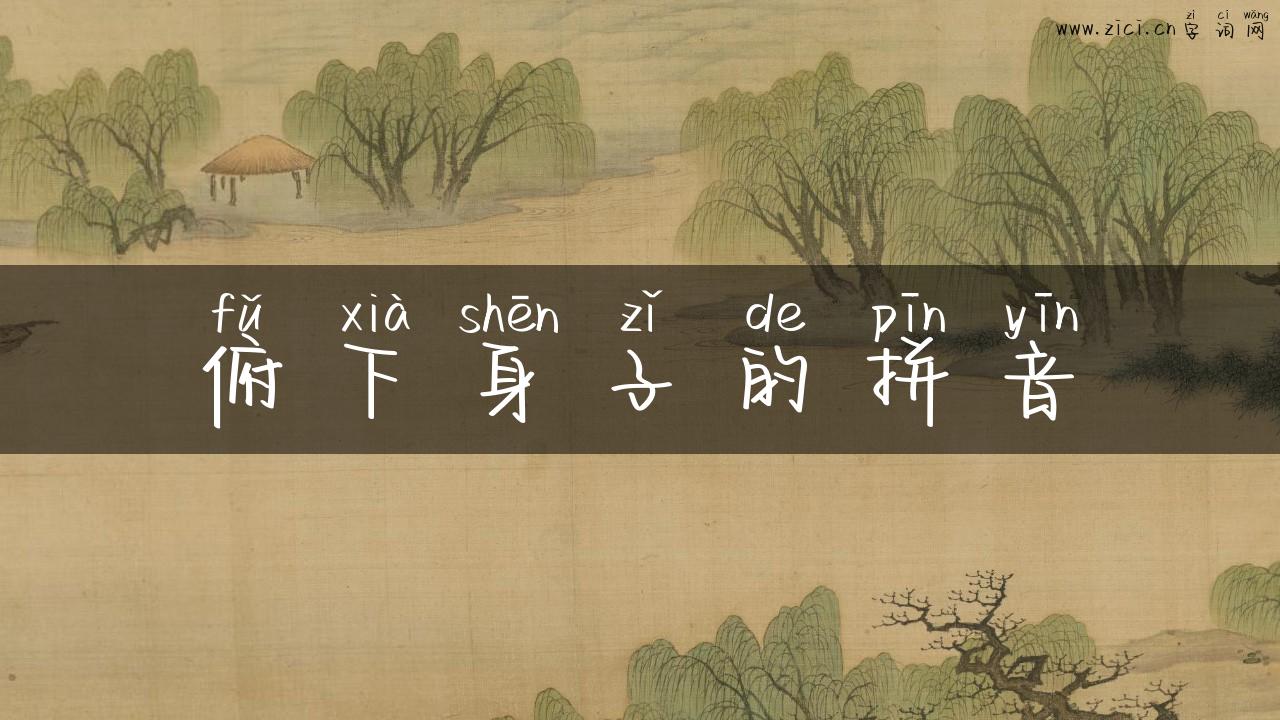 zì cí wǎng
www.zici.cn 字词网
fǔ xià shēn zǐ de pīn yīn
俯下身子的拼音